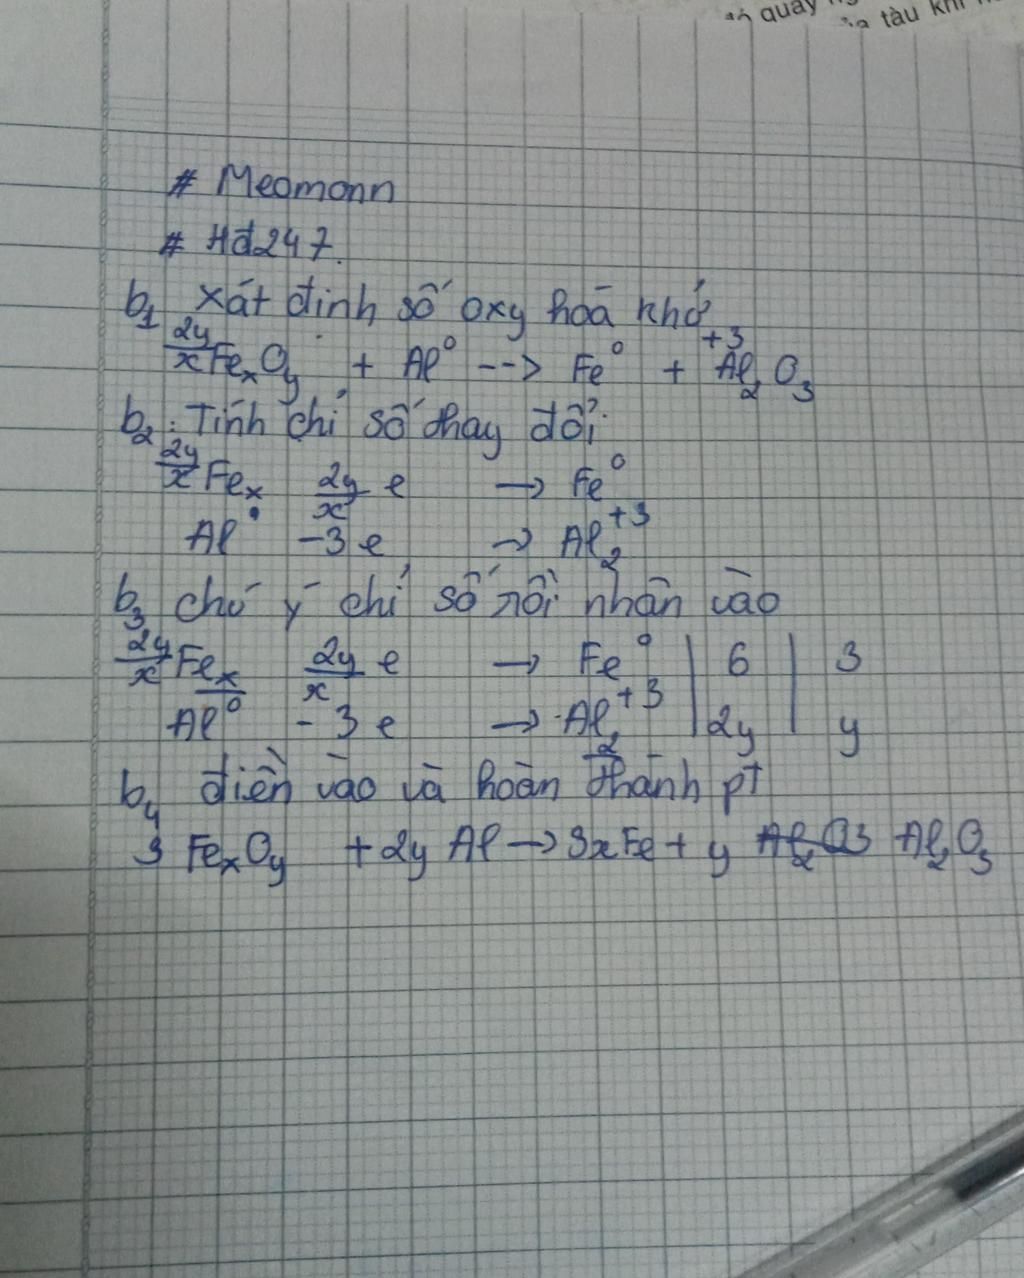 quay
tàu khí
# Meomonn
# Hđ247.
b1 xát định số oxy hoá khở
2y/x FexOy + Al⁰ --> Fe⁰ + +3 Al2O3
b2: Tính chỉ số thay đổi
2y/x Fex 2y/x e → Fe⁰
Al⁰ -3e → Al2⁺³
b3 chú ý chỉ số rồi nhân vào
2y/x Fex 2y/x e → Fe⁰ | 6 | 3
Al⁰ - 3e → Al2⁺³ | 2y | y
b4 điền vào và hoàn thành pt
3 FexOy + 2y Al → 3xFe + y Al2O3 Al2O3